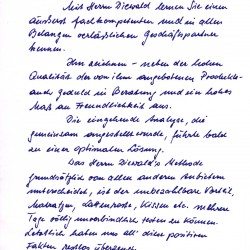 Mit Herrn Diewald lernen Sie einen
äußerst fachkompetenten und in allen
Belangen verlässlichen Geschäftspartner
kennen.
Ihn zeichnen - neben der hohen
Qualität der von ihm angebotenen Produkte -
auch Geduld in Beratung und ein hohes
Maß an Freundlichkeit aus.
Die eingehende Analyse, die
gemeinsam angestellt wurde, führte bald
zu einer optimalen Lösung.
Was Herrn Diewald's Methode
grundsätzlich von allen anderen Anbietern
unterscheidet, ist der unbezahlbare Vorteil,
Matratzen, Lattenroste, Kissen etc. mehrere
Tage völlig unverbindlich testen zu können.
Letztlich haben uns all' diese positiven
Fakten restlos überzeugt.